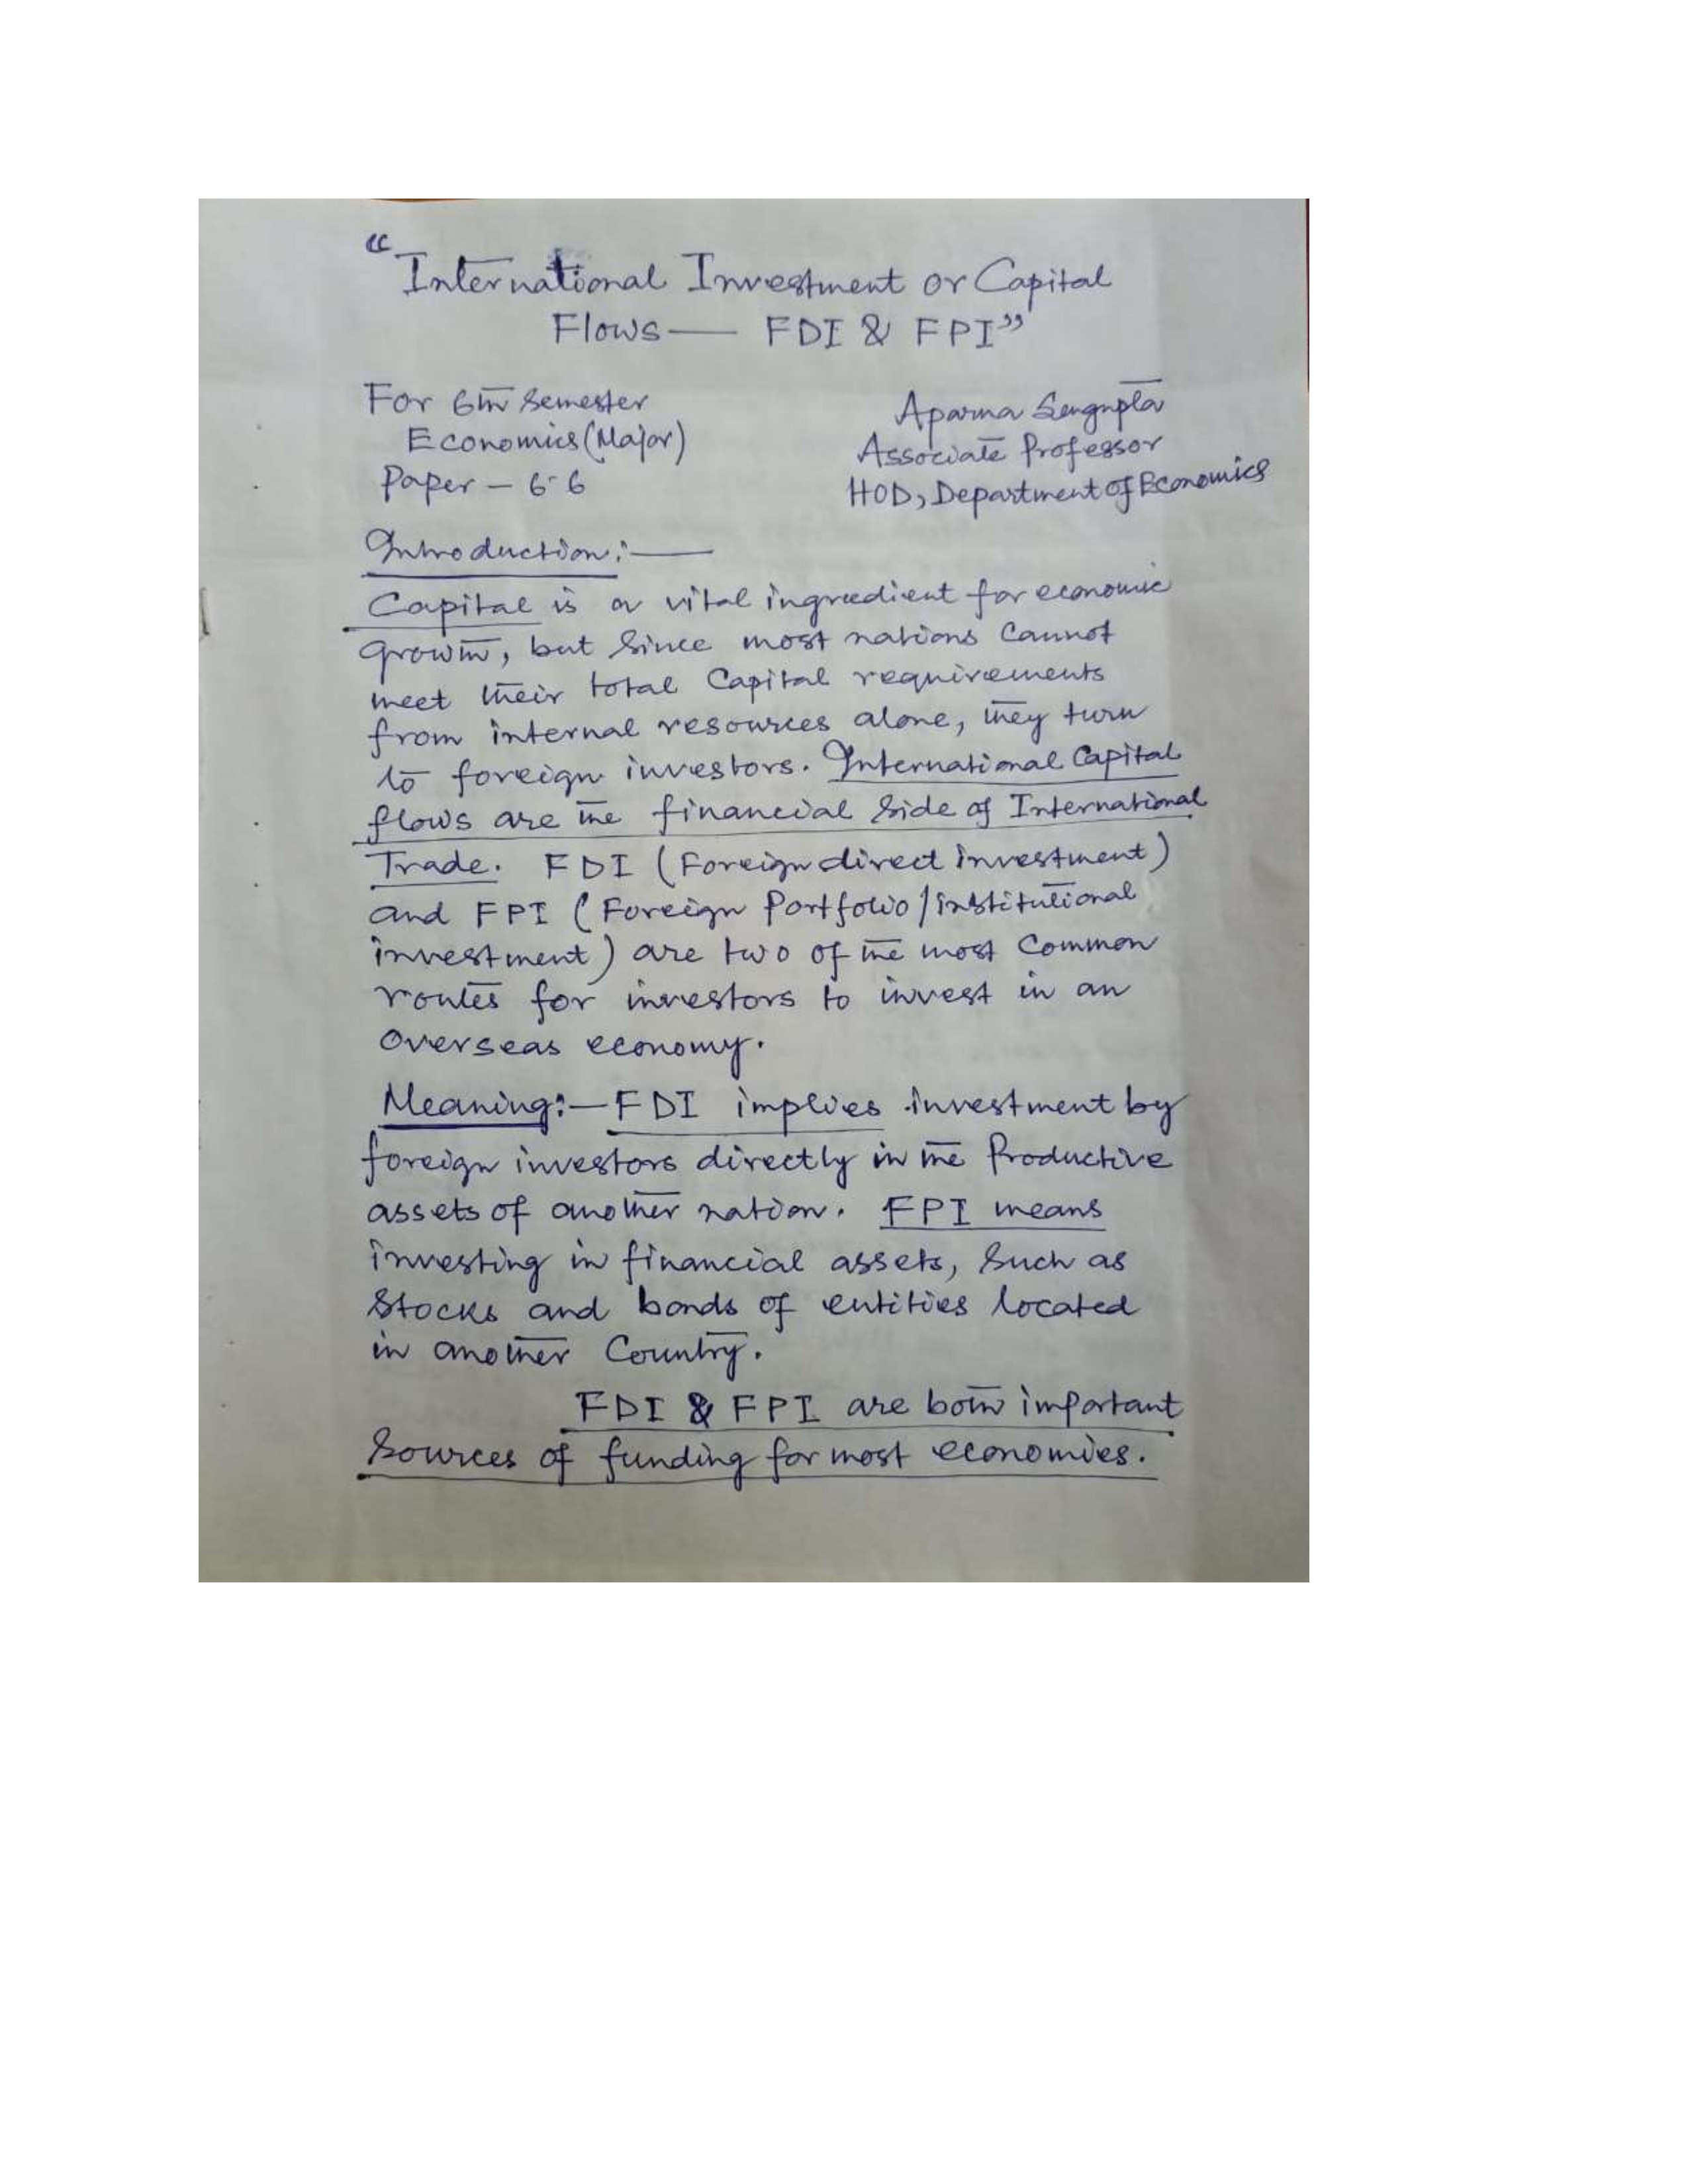 "International Investment or Capital
Flows — FDI & FPI"
For 6th Semester
Economics (Major)
Paper – 6.6
Aparna Sengupta
Associate Professor
HOD, Department of Economics
Introduction:—
Capital is a vital ingredient for economic
growth, but since most nations cannot
meet their total Capital requirements
from internal resources alone, they turn
to foreign investors. International Capital
flows are the financial side of International
Trade. FDI (Foreign direct investment)
and FPI (Foreign Portfolio/institutional
investment) are two of the most Common
routes for investors to invest in an
overseas economy.
Meaning:— FDI implies investment by
foreign investors directly in the Productive
assets of another nation. FPI means
investing in financial assets, such as
Stocks and bonds of entities located
in another Country.
FDI & FPI are both important
Sources of funding for most economies.